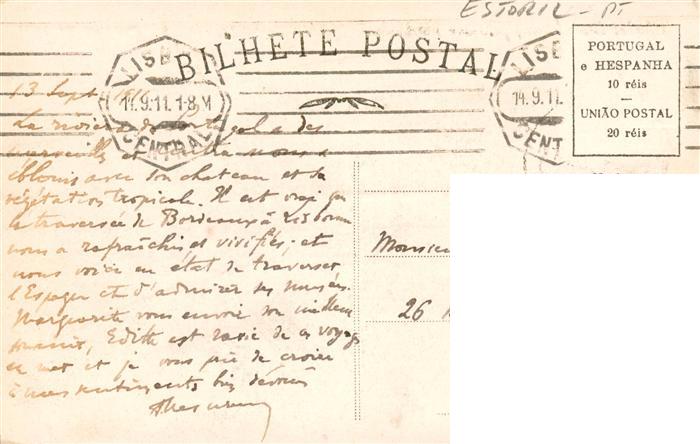 ESTORIL - PT
BILHETE POSTAL
LISB
14.9.11. 1-8M
CENTRAL
LISB
14.9.11.
CENT
PORTUGAL
e HESPANHA
10 réis
UNIÃO POSTAL
20 réis
13 Sept
La riviera de Portugal a des
merveilles et nous a
éblouis avec son chateau et sa
végétation tropicale. Il est vrai que
la traversée de Bordeaux à Lisbonne
nous a rafraîchis et vivifiés, et
nous voici en état de traverser
l'Espagne et d'admirer ses musées.
Marguerite vous envoie son meilleur
souvenir, Edith est ravie de ce voyage
en mer et je vous prie de croire
à mes sentiments bien dévoués
Monsieu
26